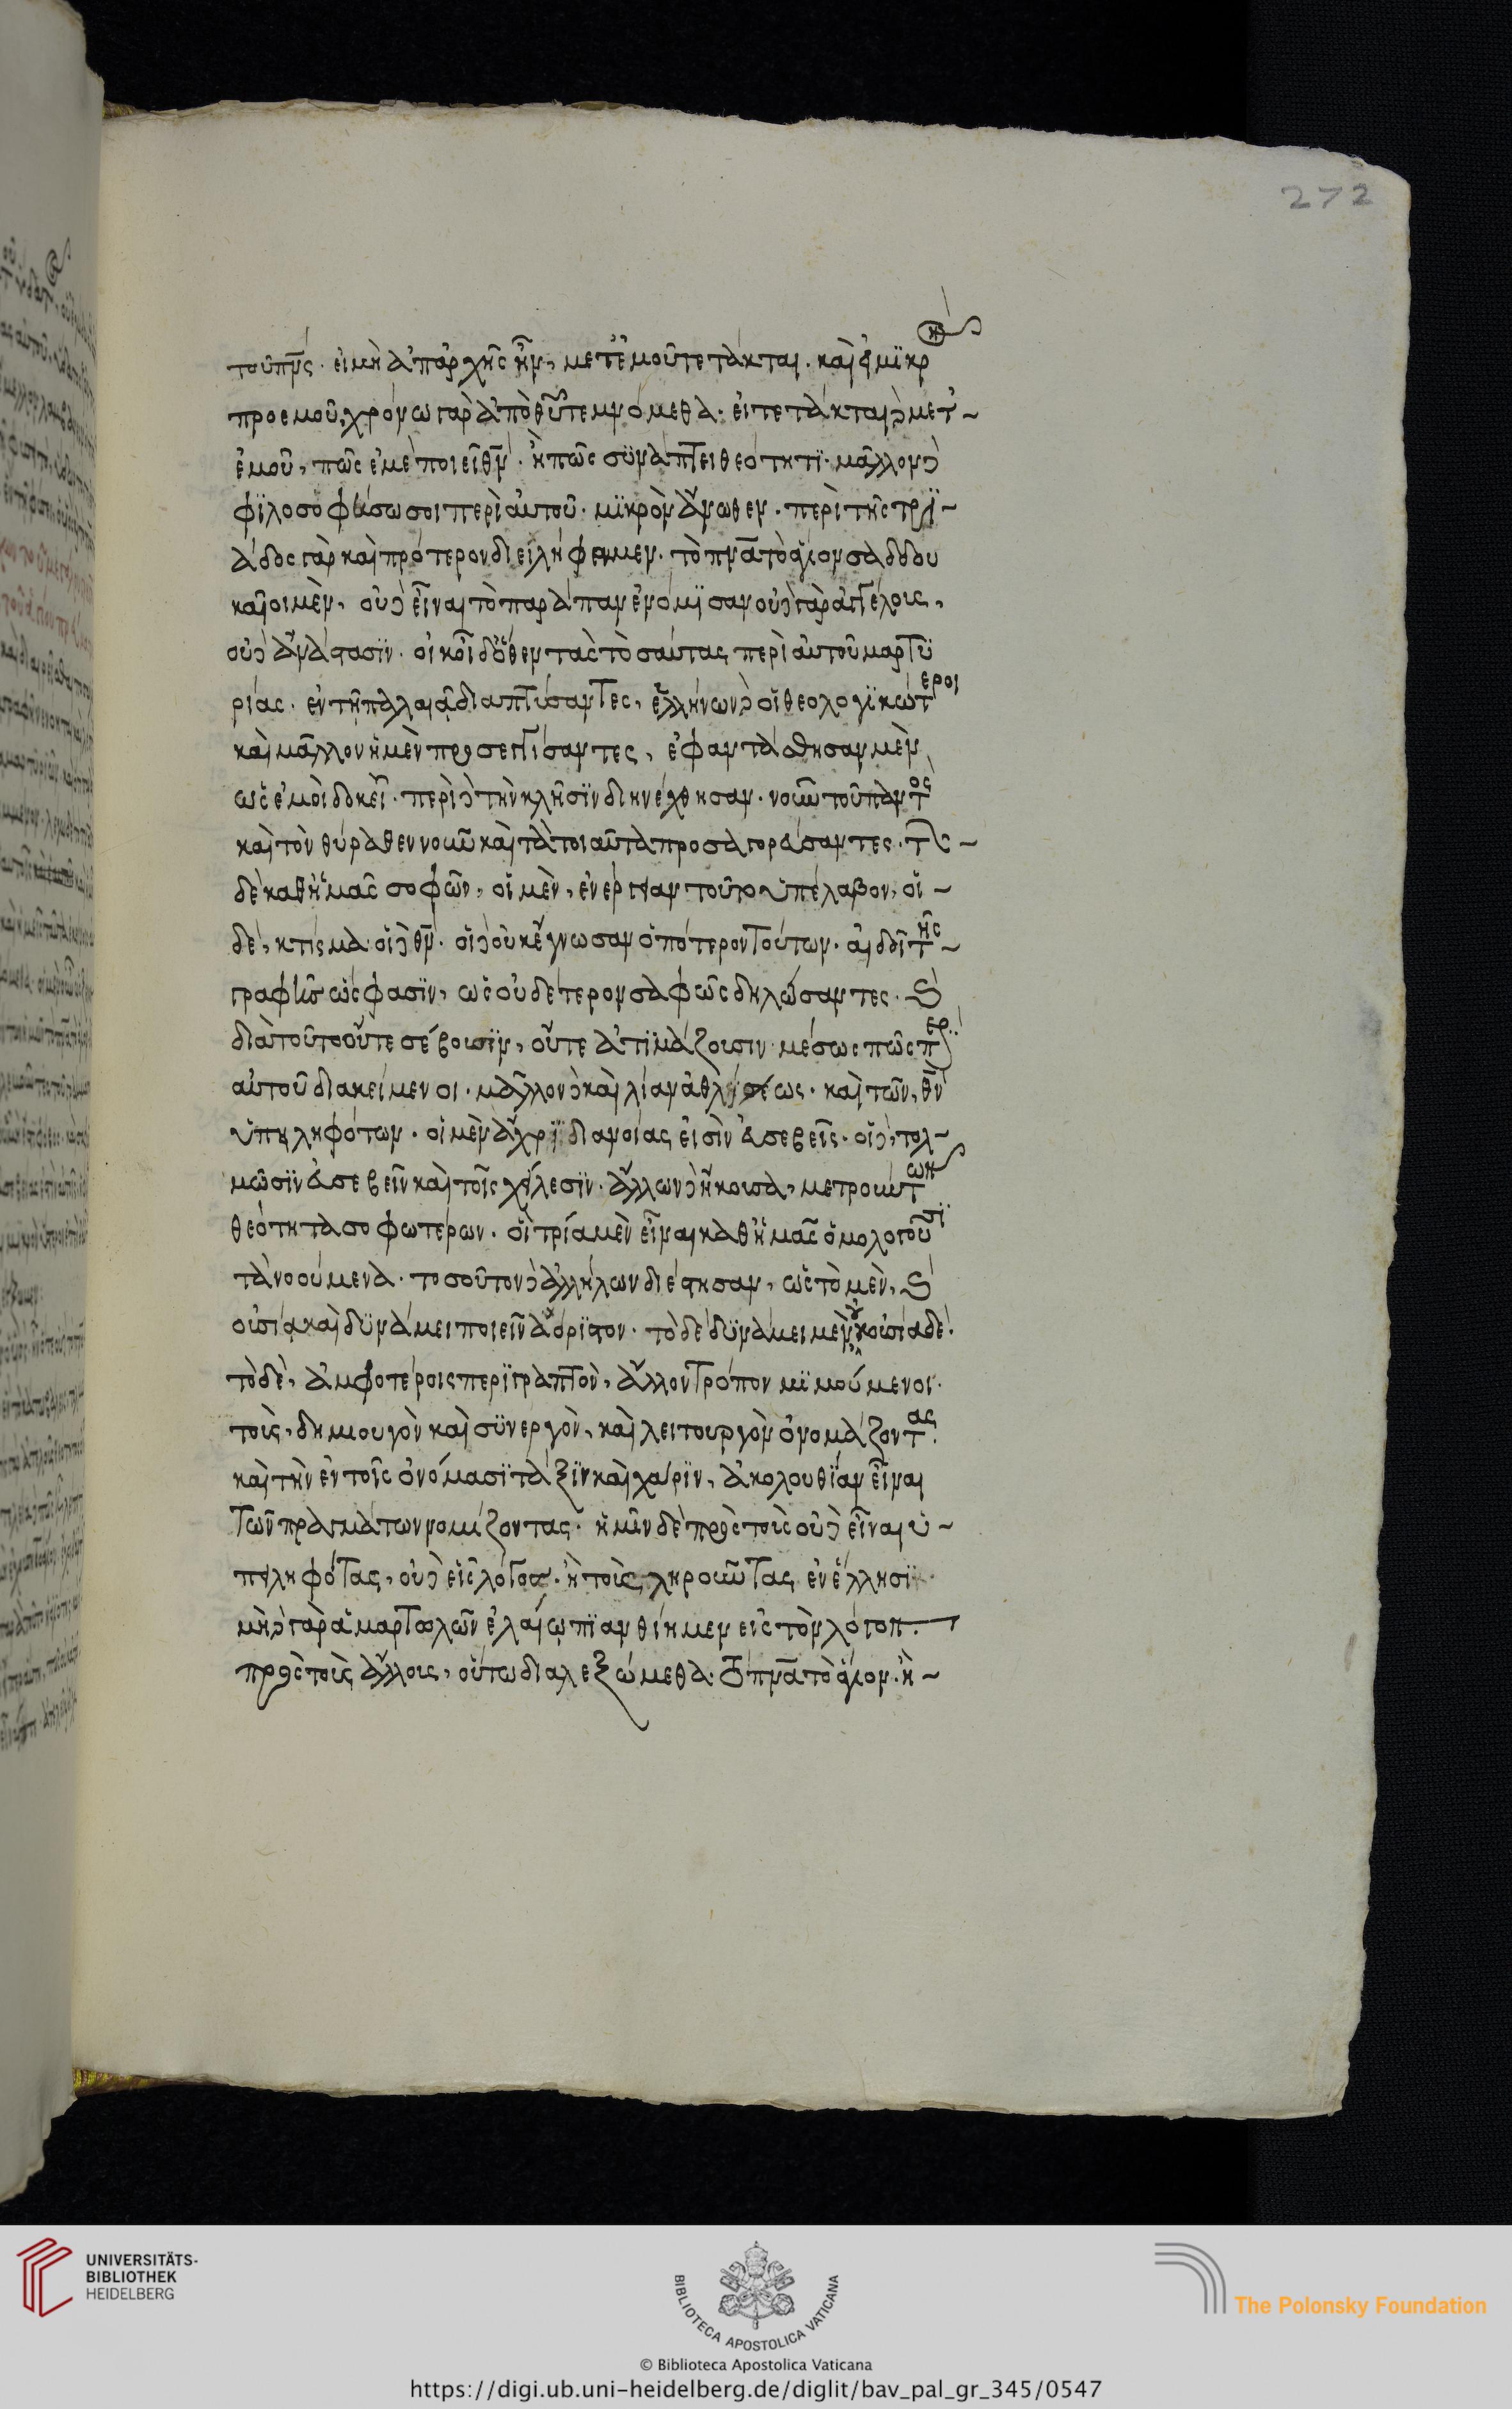 272
τοῦ πν̅ς· εἰ μὴ ἀπαρχῆς ἦν, μετ ἐμοῦ τέτακται. καὶ εἰ μϊκρὸν
προ ἐμοῦ, χρόνω γὰρ ἀπὸ θυ̅ τεμνόμεθα· εἰ τέτακται δὲ μετ
ἐμοῦ, πῶς ἐμὲ ποιεῖ θν̅. ἢ πῶς συνάπτει θεότητϊ· μᾶλλον δὲ
φϊλοσοφήσω σοι περὶ αὐτοῦ· μϊκρὸν ἄνωθεν. περὶ τῆς τρϊ
άδος γὰρ καὶ πρότερον διειλήφαμεν. τὸ πνα̅ τὸ ἅγιον σαδδου
καῖοι μὲν, οὐδὲ εἶναι τὸ παράπαν ἐνόμϊσαν οὐδὲ γὰρ ἀγγέλους,
οὐδὲ ἀνάστασϊν· οὐκ οἶδ ὅθεν τὰς τοσαύτας περὶ αὐτοῦ μαρτϋ
ρίας· ἐν τῆ παλαιᾶ διαπτύσαντες, ἑλλήνων δὲ οἱ θεολογϊκώτεροι
καὶ μᾶλλον ἡμῖν προσεγγίσαντες, ἐφαντάσθησαν μὲν
ὡς ἐμοὶ δοκεῖ· περὶ δὲ τὴν κλῆσϊν διηνέχθησαν. νοῦν τοῦ παντὸς
καὶ τὸν θύραθεν νοῦν καὶ τὰ τοιαῦτα προσαγορεύσαντες. τῶν
δὲ καθ ἡμᾶς σοφῶν, οἱ μὲν, ἐνέργειαν τοῦτο ὑπέλαβον, οἱ
δὲ, κτίσμα· οἱ δὲ θν̅. οἱ δὲ οὐκ ἔγνωσαν ὁπότερον τούτων. αἰδοῖ τῆς
γραφῆς ὥς φασϊν, ὡς οὐδέτερον σαφῶς δηλώσαντες. καὶ
διὰ τοῦτο οὔτε σέβουσϊν, οὔτε ἀτϊμάζουσιν· μέσως πῶς περϊ
αὐτοῦ διακείμενοι. μᾶλλον δὲ καὶ λίαν ἀθλίως. καὶ τῶν, θν̅
ὑπειληφότων. οἱ μὲν ἄχρϊ διανοίας εἰσὶν εὐσεβεῖς. οἱ δὲ, τολ
μῶσϊν εὐσεβεῖν καὶ τοῖς χείλεσϊν. ἄλλων δὲ ἤκουσα, μετρούντων
θεότητα σοφωτέρων. οἳ τρία μὲν εἶναι καθ ἡμᾶς ὁμολογοῦσϊ
τὰ νοούμενα. τοσοῦτον δὲ ἀλλήλων διέστησαν, ὡς τὸ μὲν, καὶ
οὐσία καὶ δϋνάμει ποιεῖν ἀόρϊστον. τὸ δὲ δϋνάμει μὲν, οὐκ οὐσία δέ.
τὸ δὲ, ἀμφοτέροις περϊγραπτὸν, ἄλλον τρόπον μϊμούμενοι.
τοὺς, δημιουργὸν καὶ συνεργὸν, καὶ λειτουργὸν ὀνομάζοντας.
καὶ τὴν ἐν τοῖς ὀνόμασϊ τάξϊν καὶ χάρϊν, ἀκολουθϊαν εἶναι
τῶν πραγμάτων νομίζοντας· ἡμῖν δὲ πρὸς τοὺς οὐδὲ εἶναι ὑ
πειληφότας, οὐδεὶς λόγος. ἢ τοὺς ληροῦντας ἐν ἕλλησϊ
μὴ δὲ γὰρ ἁμαρτωλῶν ἐλαίω πϊανθίημεν εἰς τὸν λόγον.
πρὸς τοὺς ἄλλους, οὕτω διαλεξώμεθα· τὸ πνα̅ τὸ ἅγιον. ἢ
UNIVERSITÄTS-
BIBLIOTHEK
HEIDELBERG
BIBLIOTECA APOSTOLICA VATICANA
The Polonsky Foundation
© Biblioteca Apostolica Vaticana
https://digi.ub.uni-heidelberg.de/diglit/bav_pal_gr_345/0547